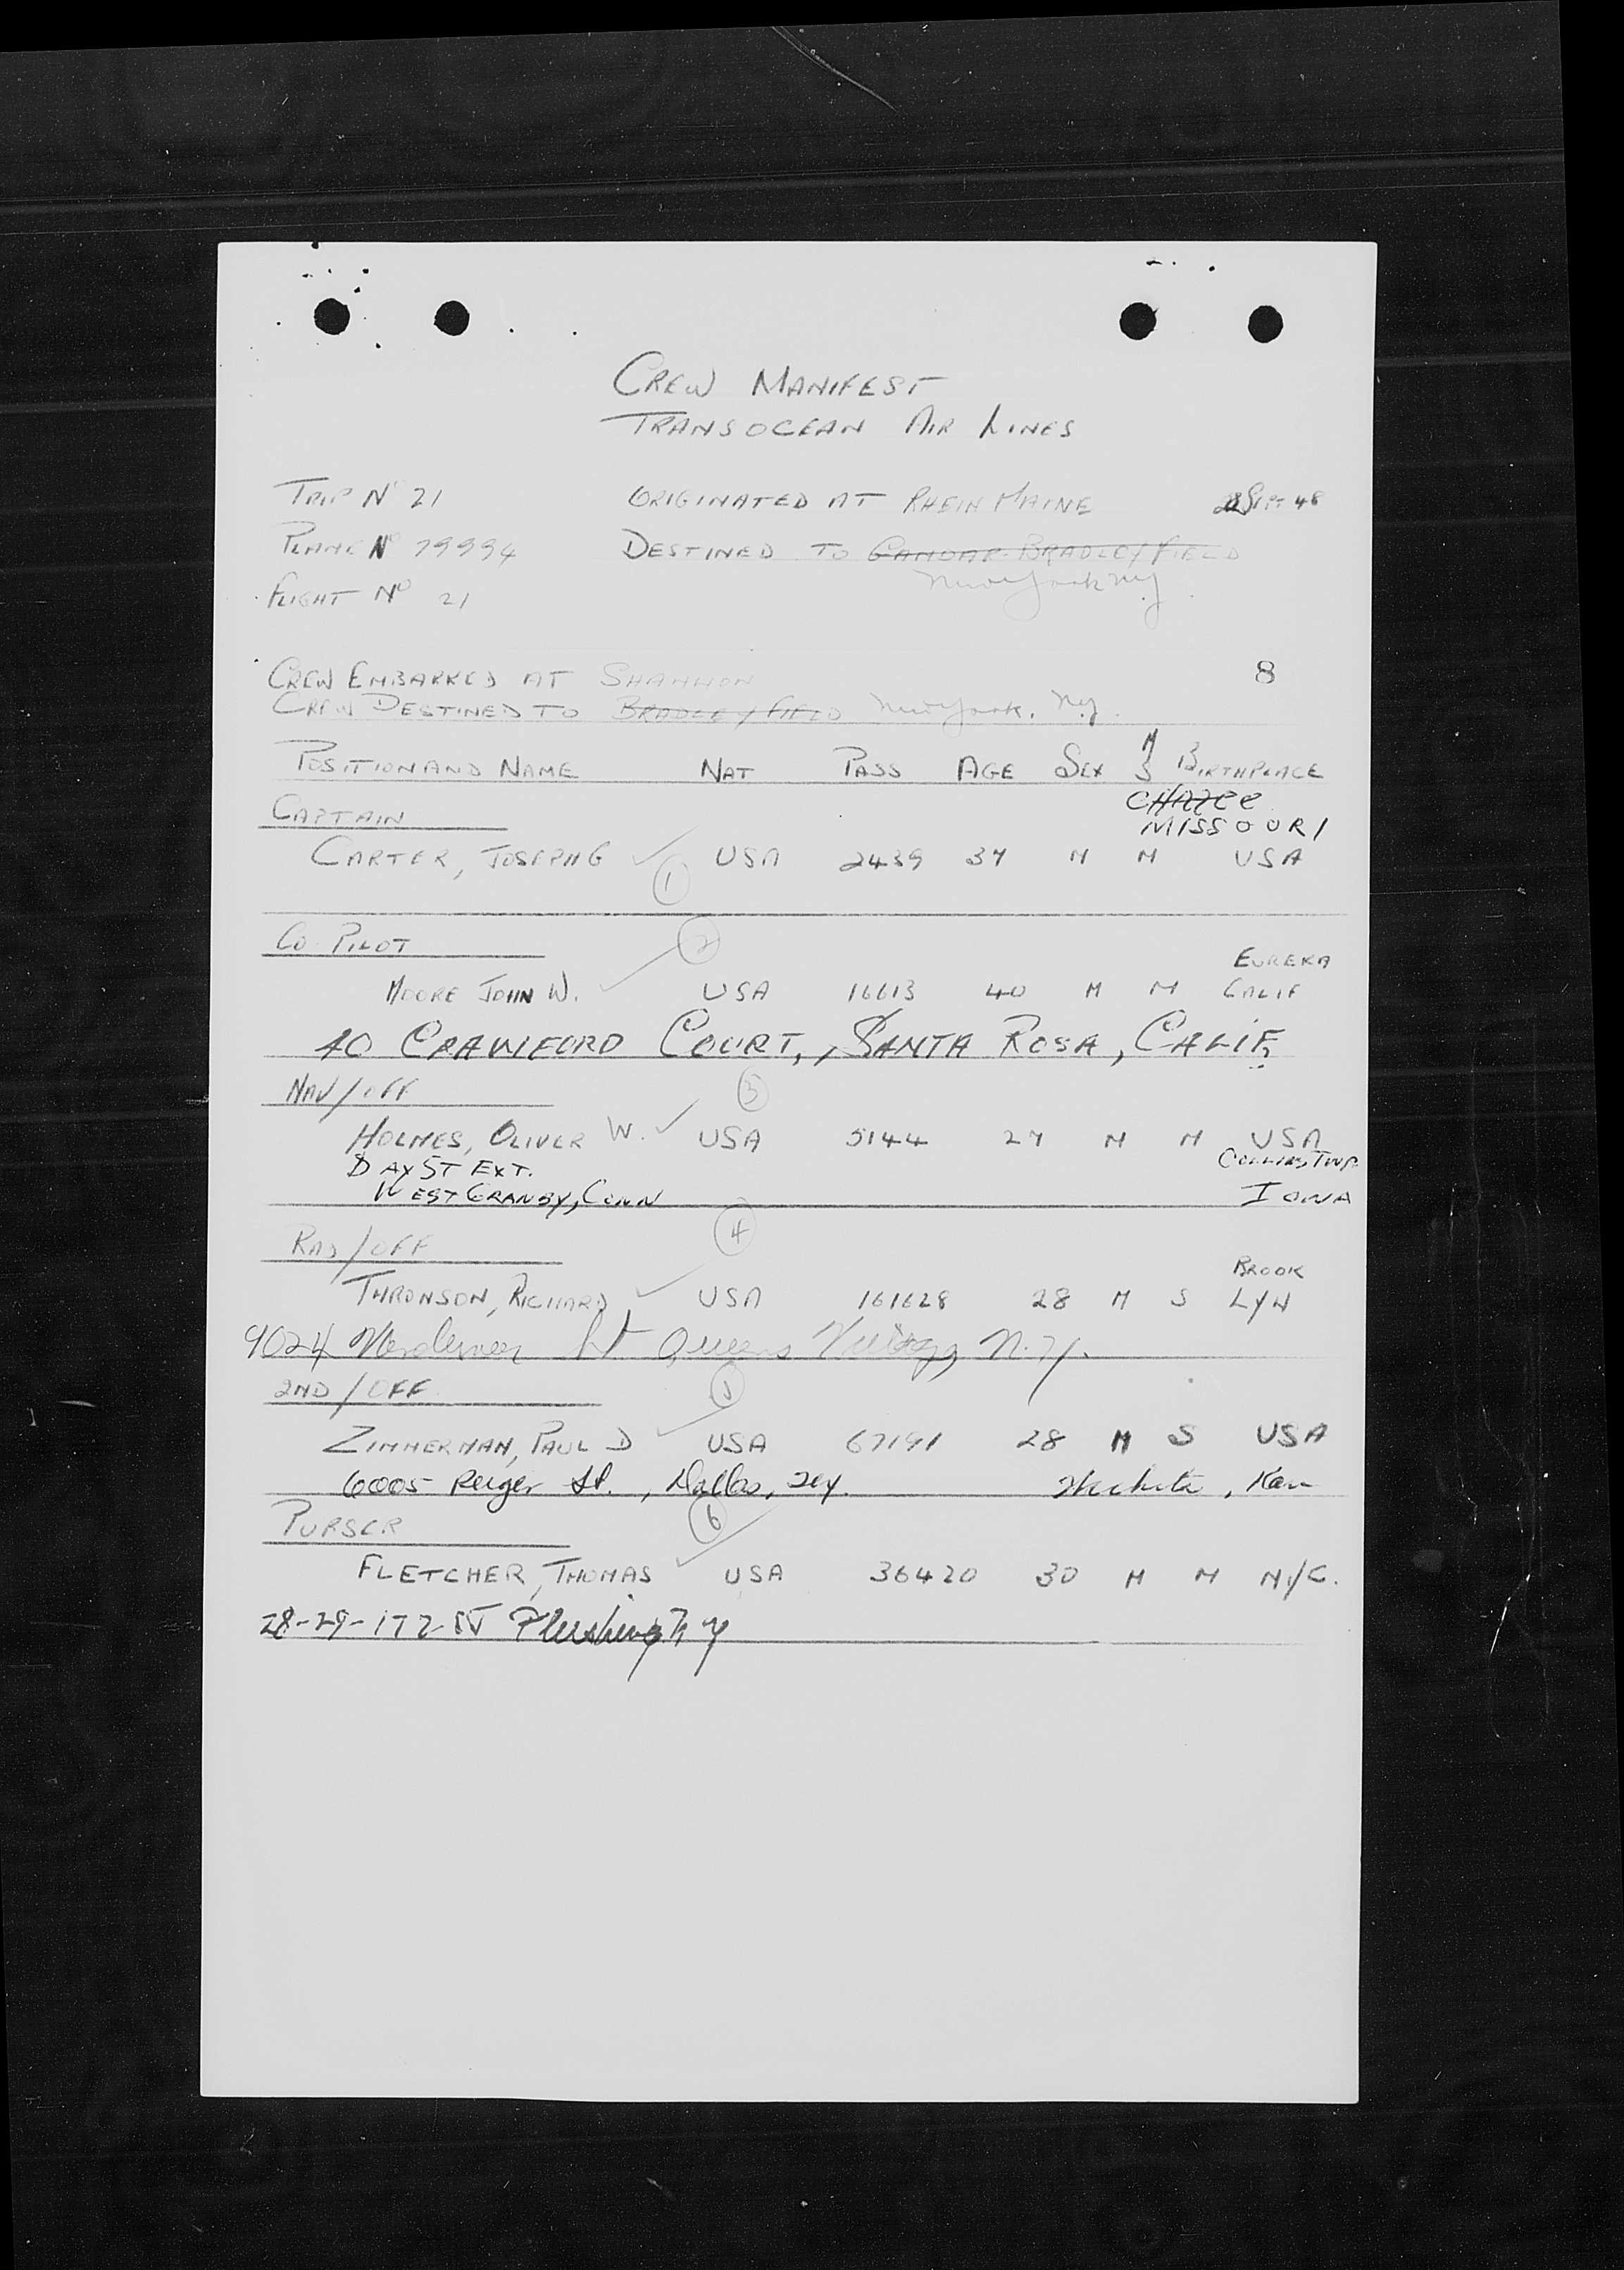 CREW MANIFEST
TRANSOCEAN AIR LINES
TRIP No 21 ORIGINATED AT RHEIN MAINE SEPT 48
PLANE No 79994 DESTINED TO GANDAR BRADLEY FIELD
New York NY
FLIGHT No 21
8
CREW EMBARKED AT SHANNON
CREW DESTINED TO BRADLEY FIELD New York, N.Y.
POSITION AND NAME NAT PASS AGE SEX M S BIRTHPLACE
CAPTAIN
MISSOURI
CARTER, JOSEPH G USA 2439 37 M M USA
1
CO-PILOT 2
EUREKA
MOORE JOHN W. USA 16613 40 M M CALIF
10 CRAWFORD COURT, SANTA ROSA, CALIF.
NAV/OFF 3
HOLMES, OLIVER W. USA 5144 27 M M USA
DAY ST EXT. COLLINS TWP.
WEST GRANBY, CONN IOWA
RAD/OFF 4
BROOK
THRONSON, RICHARD USA 161628 28 M S LYN
9024 St Queens Village N.Y.
2ND/OFF 5
ZIMMERMAN, PAUL D USA 67191 28 M S USA
6005 Reiger St., Dallas, Tex. Wichita, Kan
PURSER 6
FLETCHER, THOMAS USA 36420 30 M M N.Y.C.
28-29-172 ST Flushing N Y